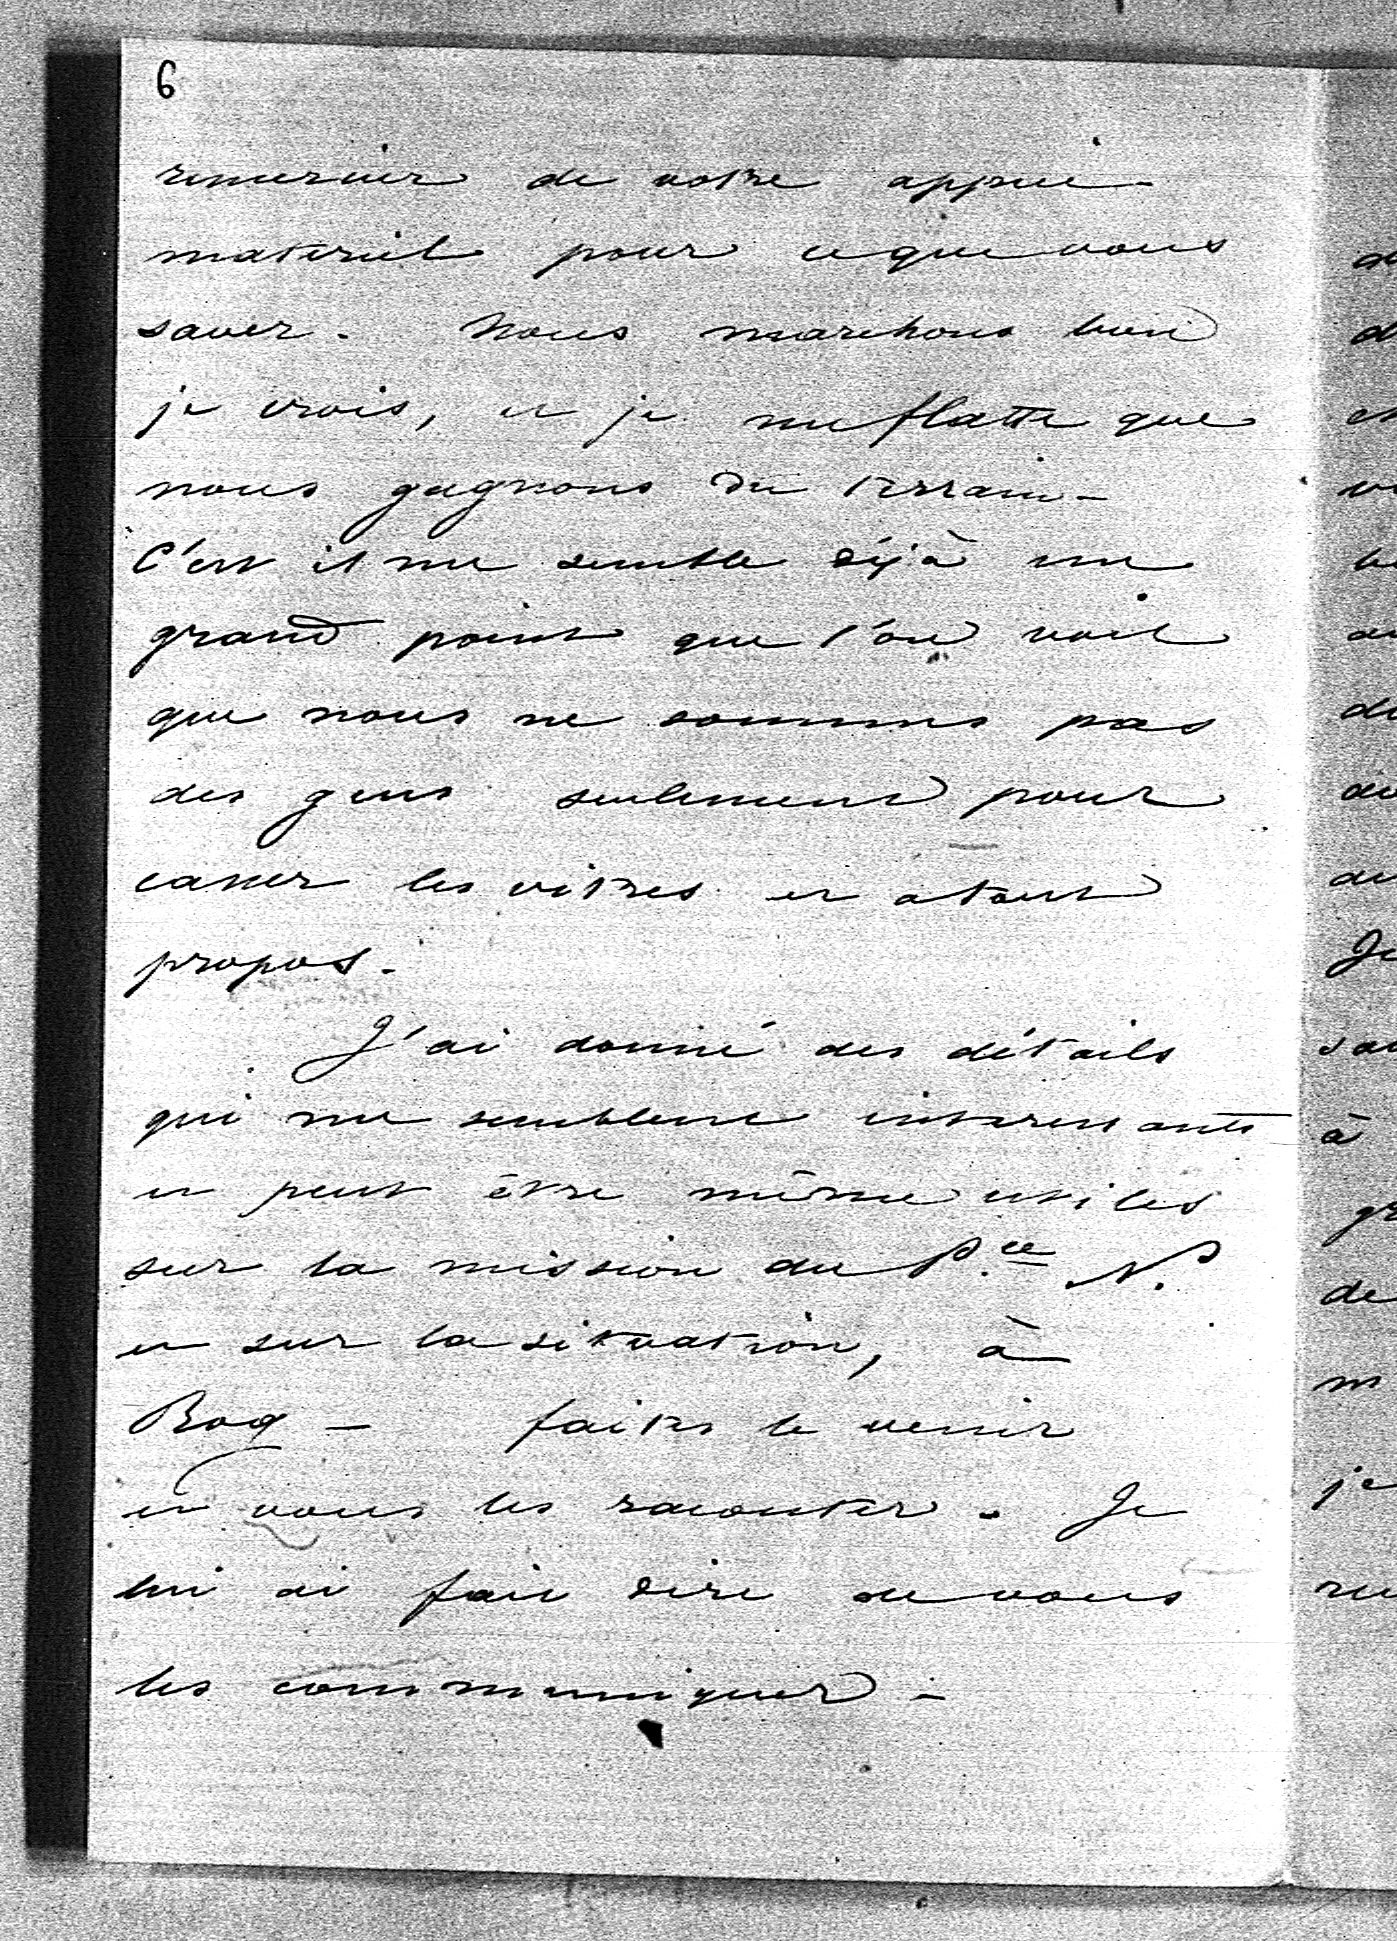 6
remercier de votre appui
materiel pour ce que vous
savez. Nous marchons bien
je crois, et je me flatte que
nous gagnons du terrain -
C'est il me semble déjà un
grand point que l'on voit
que nous ne sommes pas
des gens seulement pour
casser les vitres et a tout
propos.
J'ai donné des détails
qui me semblent interessants
et peut être même utiles
sur la mission du P.ce N.
et sur la situation, à
Bog - faites le venir
et vous les raconter. Je
lui ai fait dire de vous
les communiquer -
à
Je
je